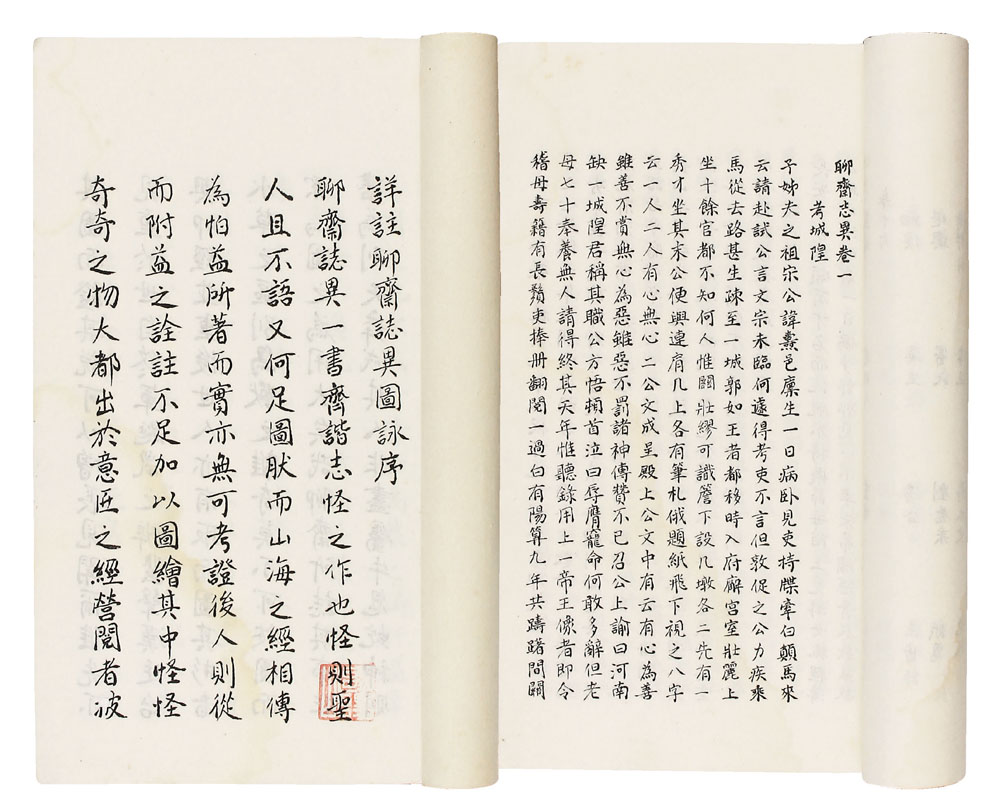 聊齋志異卷一
考城隍
予姊夫之祖宋公諱燾邑廩生一日病臥見吏持牒牽白顛馬來
云請赴試公言文宗未臨何遽得考吏不言但敦促之公力疾乘
馬從去路甚生疎至一城郭如王者都移時入府廨宮室壯麗上
坐十餘官都不知何人惟關壯繆可識簷下設几墩各二先有一
秀才坐其末公便與連肩几上各有筆札俄題紙飛下視之八字
云一人二人有心無心二公文成呈殿上公文中有云有心為善
雖善不賞無心為惡雖惡不罰諸神傳贊不已召公上諭曰河南
缺一城隍君稱其職公方悟頓首泣曰辱膺寵命何敢多辭但老
母七十奉養無人請得終其天年惟聽錄用上一帝王像者即令
稽母壽籍有長鬚吏捧册翻閱一過白有陽算九年共躊躇間關
詳註聊齋誌異圖詠序
聊齋誌異一書齊諧志怪之作也怪則聖
人且不語又何足圖肰而山海之經相傳
為怕益所著而實亦無可考證後人則從
而附益之詮註不足加以圖繪其中怪怪
奇奇之物大都出於意匠之經營閱者波